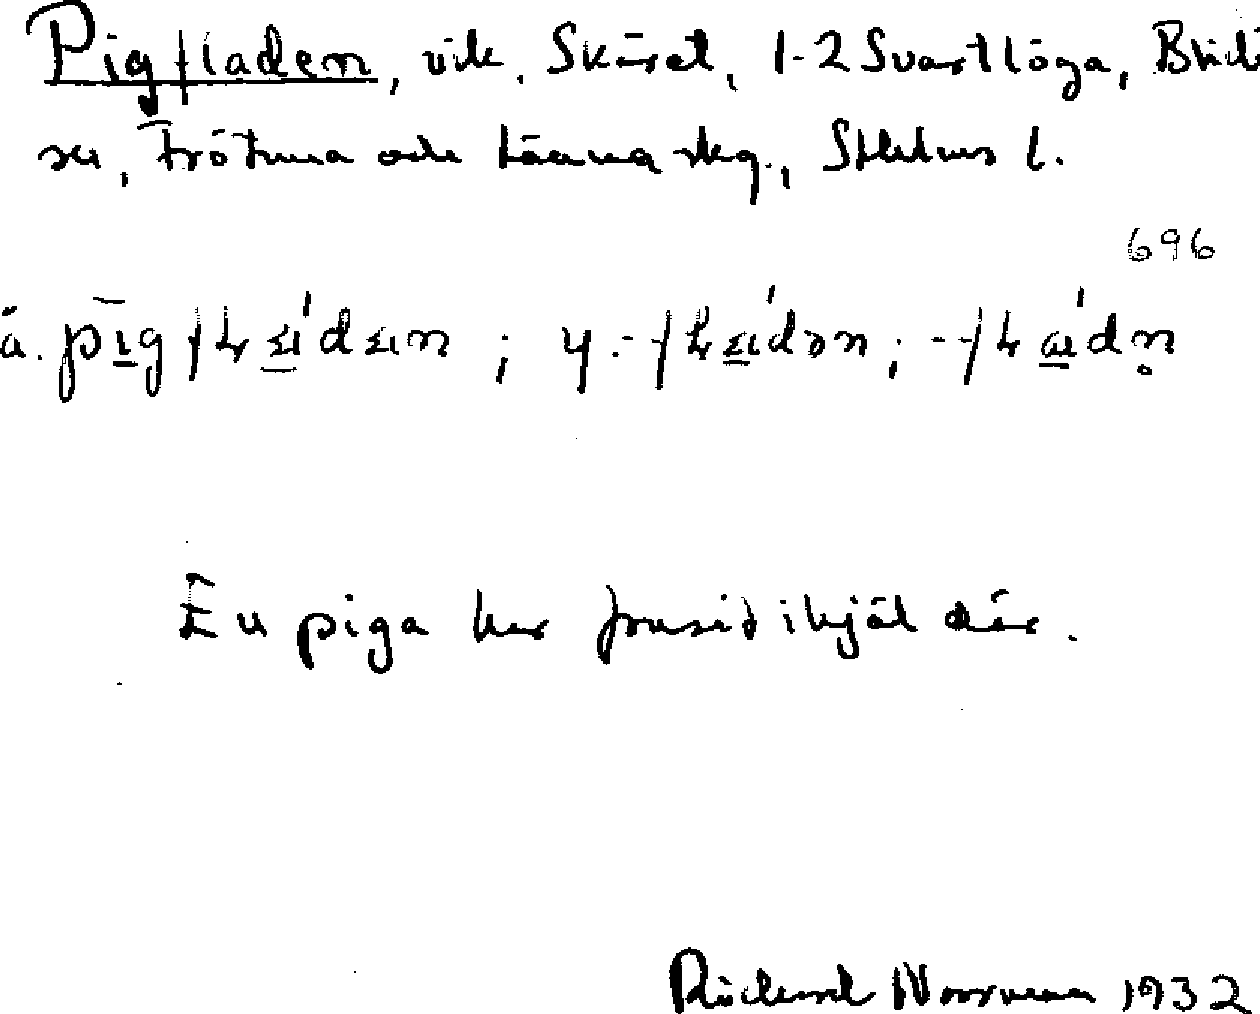 Pigfladen, vik, Skäret, 1-2 Svartlöga, Blidö
sn, Frötuna och Länna skg., Sthlms l.
696
ä. pīgfłɑ́dɑn ; y. -fłɑ́dən ; -fłɑ́dn̥
En piga har frusit ihjäl där.
Norrman 1932